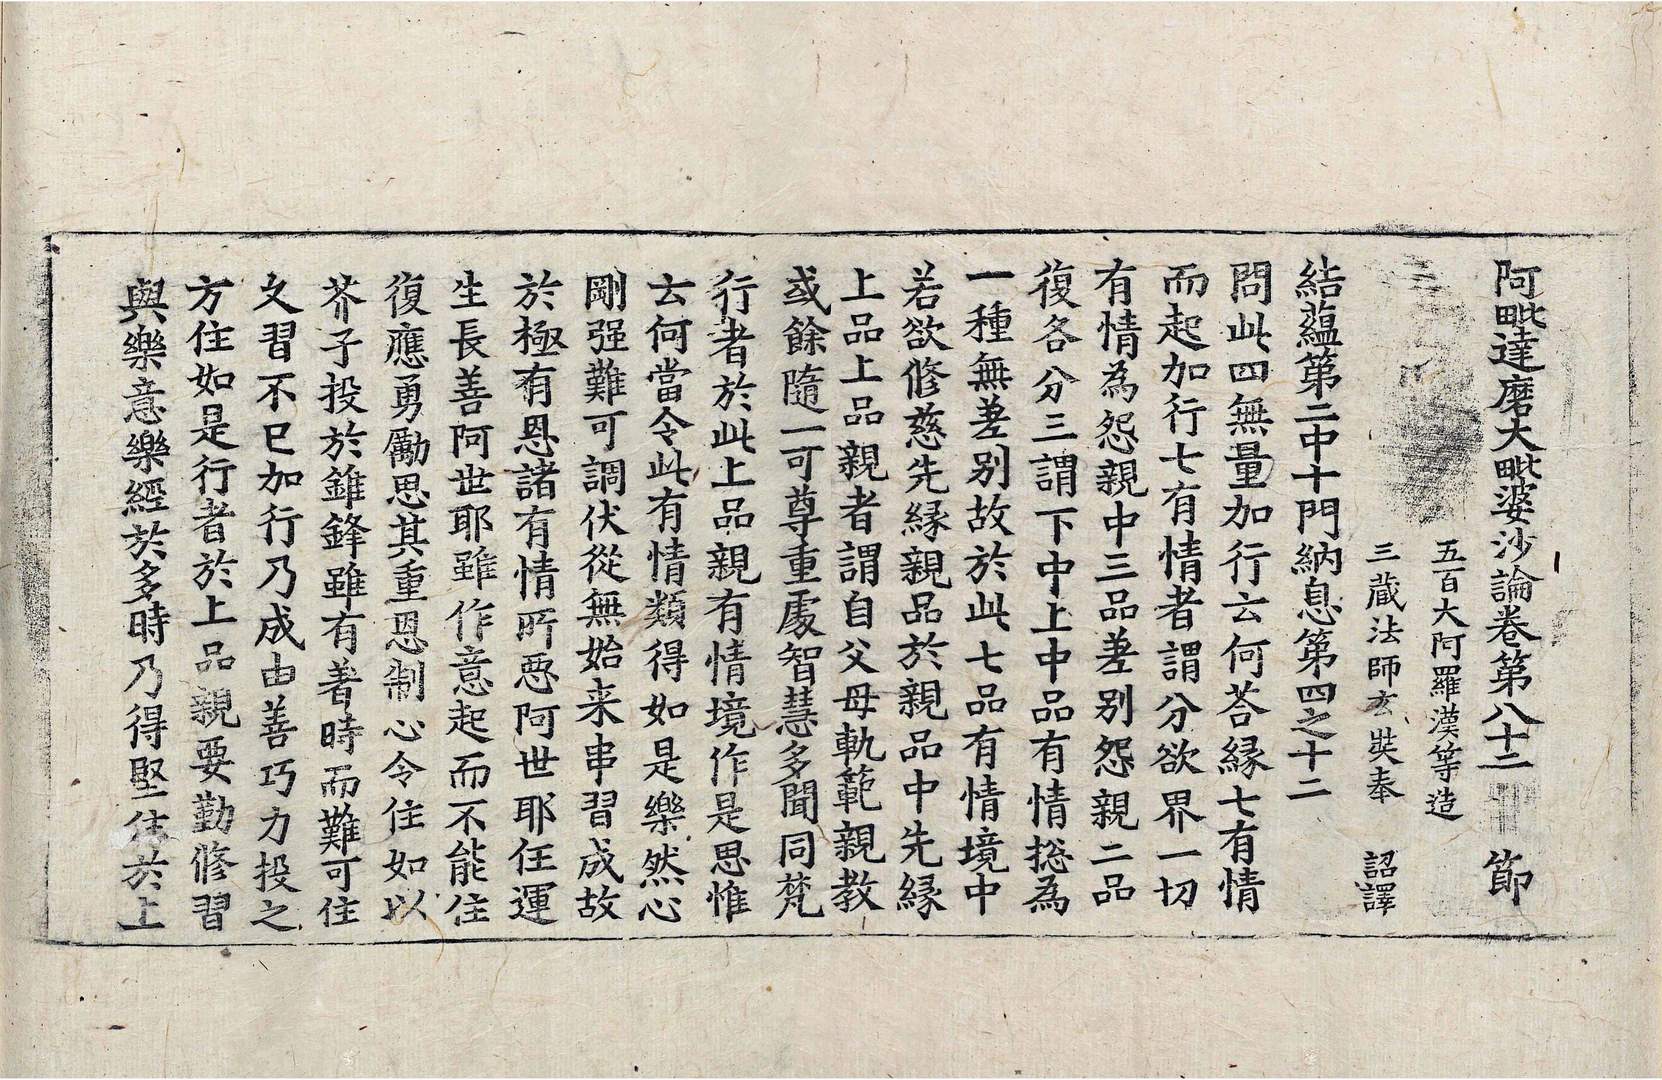 阿毗達磨大毗婆沙論卷第八十二 節
五百大阿羅漢等造
三藏法師玄奘奉 詔譯
結蘊第二中十門納息第四之十二
問此四無量加行云何荅緣七有情
而起加行七有情者謂分欲界一切
有情為怨親中三品差别怨親二品
復各分三謂下中上中品有情捴為
一種無差别故於此七品有情境中
若欲修慈先緣親品於親品中先緣
上品上品親者謂自父母軌範親教
或餘隨一可尊重處智慧多聞同梵
行者於此上品親有情境作是思惟
云何當令此有情類得如是樂然心
剛强難可調伏從無始来串習成故
於極有恩諸有情所惡阿世耶任運
生長善阿世耶雖作意起而不能住
復應勇勵思其重恩制心令住如以
芥子投於錐鋒雖有著時而難可住
久習不已加行乃成由善巧力投之
方住如是行者於上品親要勤修習
與樂意樂經於多時乃得堅住於上